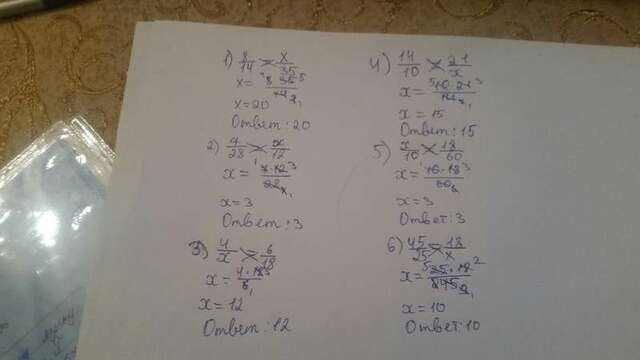 1) 8/14 = x/35
x = 8·35/14
x = 20
Ответ: 20
2) 7/28 = x/12
x = 7·12/28
x = 3
Ответ: 3
3) 4/x = 6/18
x = 4·18/6
x = 12
Ответ: 12
4) 14/10 = 21/x
x = 10·21/14
x = 15
Ответ: 15
5) x/10 = 18/60
x = 10·18/60
x = 3
Ответ: 3
6) 45/25 = 18/x
x = 25·18/45
x = 10
Ответ: 10